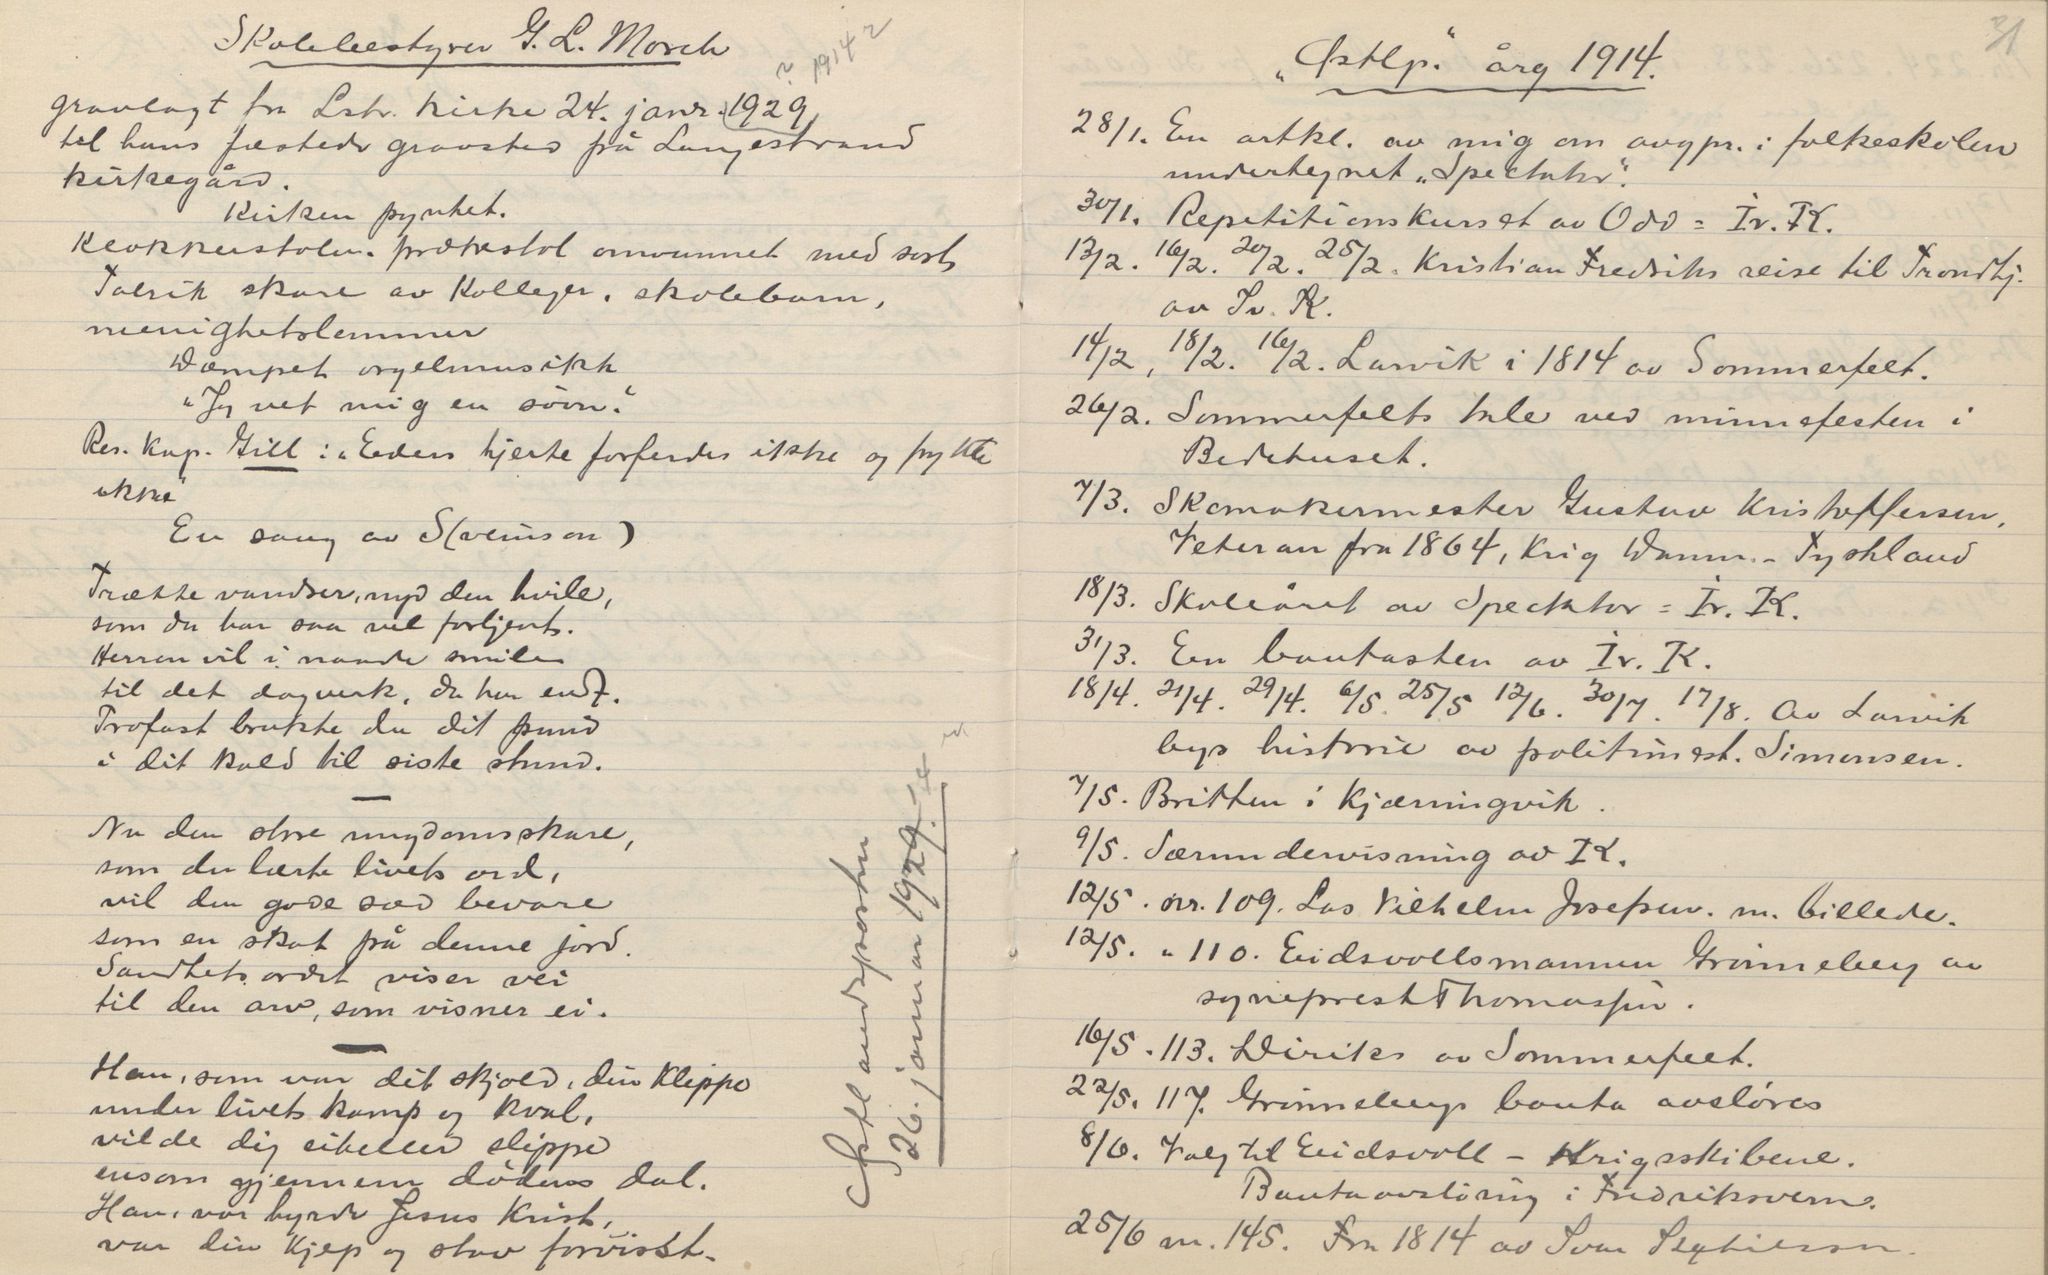 Skolebestyrer G. L. Mørch
? 1914 ?
gravlagt fra Lstr. kirke 24. janr. 1929,
til hans fæstede gravsted på Langestrand
kirkegård.
Kirken pyntet.
Klokkerstolen. prækestol omvunnet med sort
Talrik skare av Kolleger, skolebarn,
menighetslemmer
Dæmpet orgelmusikk
"Jeg vet mig en søvn."
Res. Kap. Gill: "Eders hjerte forferdes ikke og frykte
ikke"
En sang av S(veinson)
Trætte vandrer, nyd den hvile,
som du har saa vel fortjent.
Herren vil i naade smile
til det dagverk, du har endt.
Trofast brukte du dit pund
i dit kald til siste stund.
Nu den store ungdomsskare,
som du lærte livets ord,
vil den gode sæd bevare
som en skat på denne jord.
Sandhets ordet viser vei
til den arv, som visner ei.
Han, som var dit skjold, din Klippe
under livets kamp og kval,
vilde dig eiheller slippe
ensom gjennem dødens dal.
Han, vor hyrde Jesus Krist,
var din Kjep og stav forvisst.
Østlandsposten
26. januar 1929.
31
"Østlp." årg 1914.
28/1. En artkl. av mig om avgpr. i folkeskolen
undertegnet "Spectator".
30/1. Repetitionskurset av Odd = Iv. K.
13/2. 16/2. 20/2. 25/2. Kristian Fredriks reise til Trondhj.
av Iv. K.
14/2, 18/2. 16/2. Larvik i 1814 av Sommerfelt.
26/2. Sommerfelts tale ved minnefesten i
Bedehuset.
7/3. Skomakermester Gustav Kristoffersen,
Veteran fra 1864, Krig Danm. - Tyskland
18/3. Skoleåret av Specktator = Iv. K.
31/3. En bautasten av Iv. K.
18/4. 21/4. 29/4. 6/5. 25/5 12/6. 30/7. 17/8. Av Larvik
bys historie av politimest. Simonsen.
7/5. Britten i Kjærringvik.
9/5. Særundervisning av IK.
12/5. nr. 109. Los Vilhelm Josefsen. m. billede.
12/5. " 110. Eidsvollsmannen Grønneberg av
sogneprest Thomassen.
16/5. 113. Diriks av Sommerfelt.
22/5. 117. Grønnebergs bauta avsløres
8/6. Valg til Eidsvoll - Krigsskibene.
Bautaavsløring i Fredriksvern.
25/6 nr. 145. Fra 1814 av Ivar